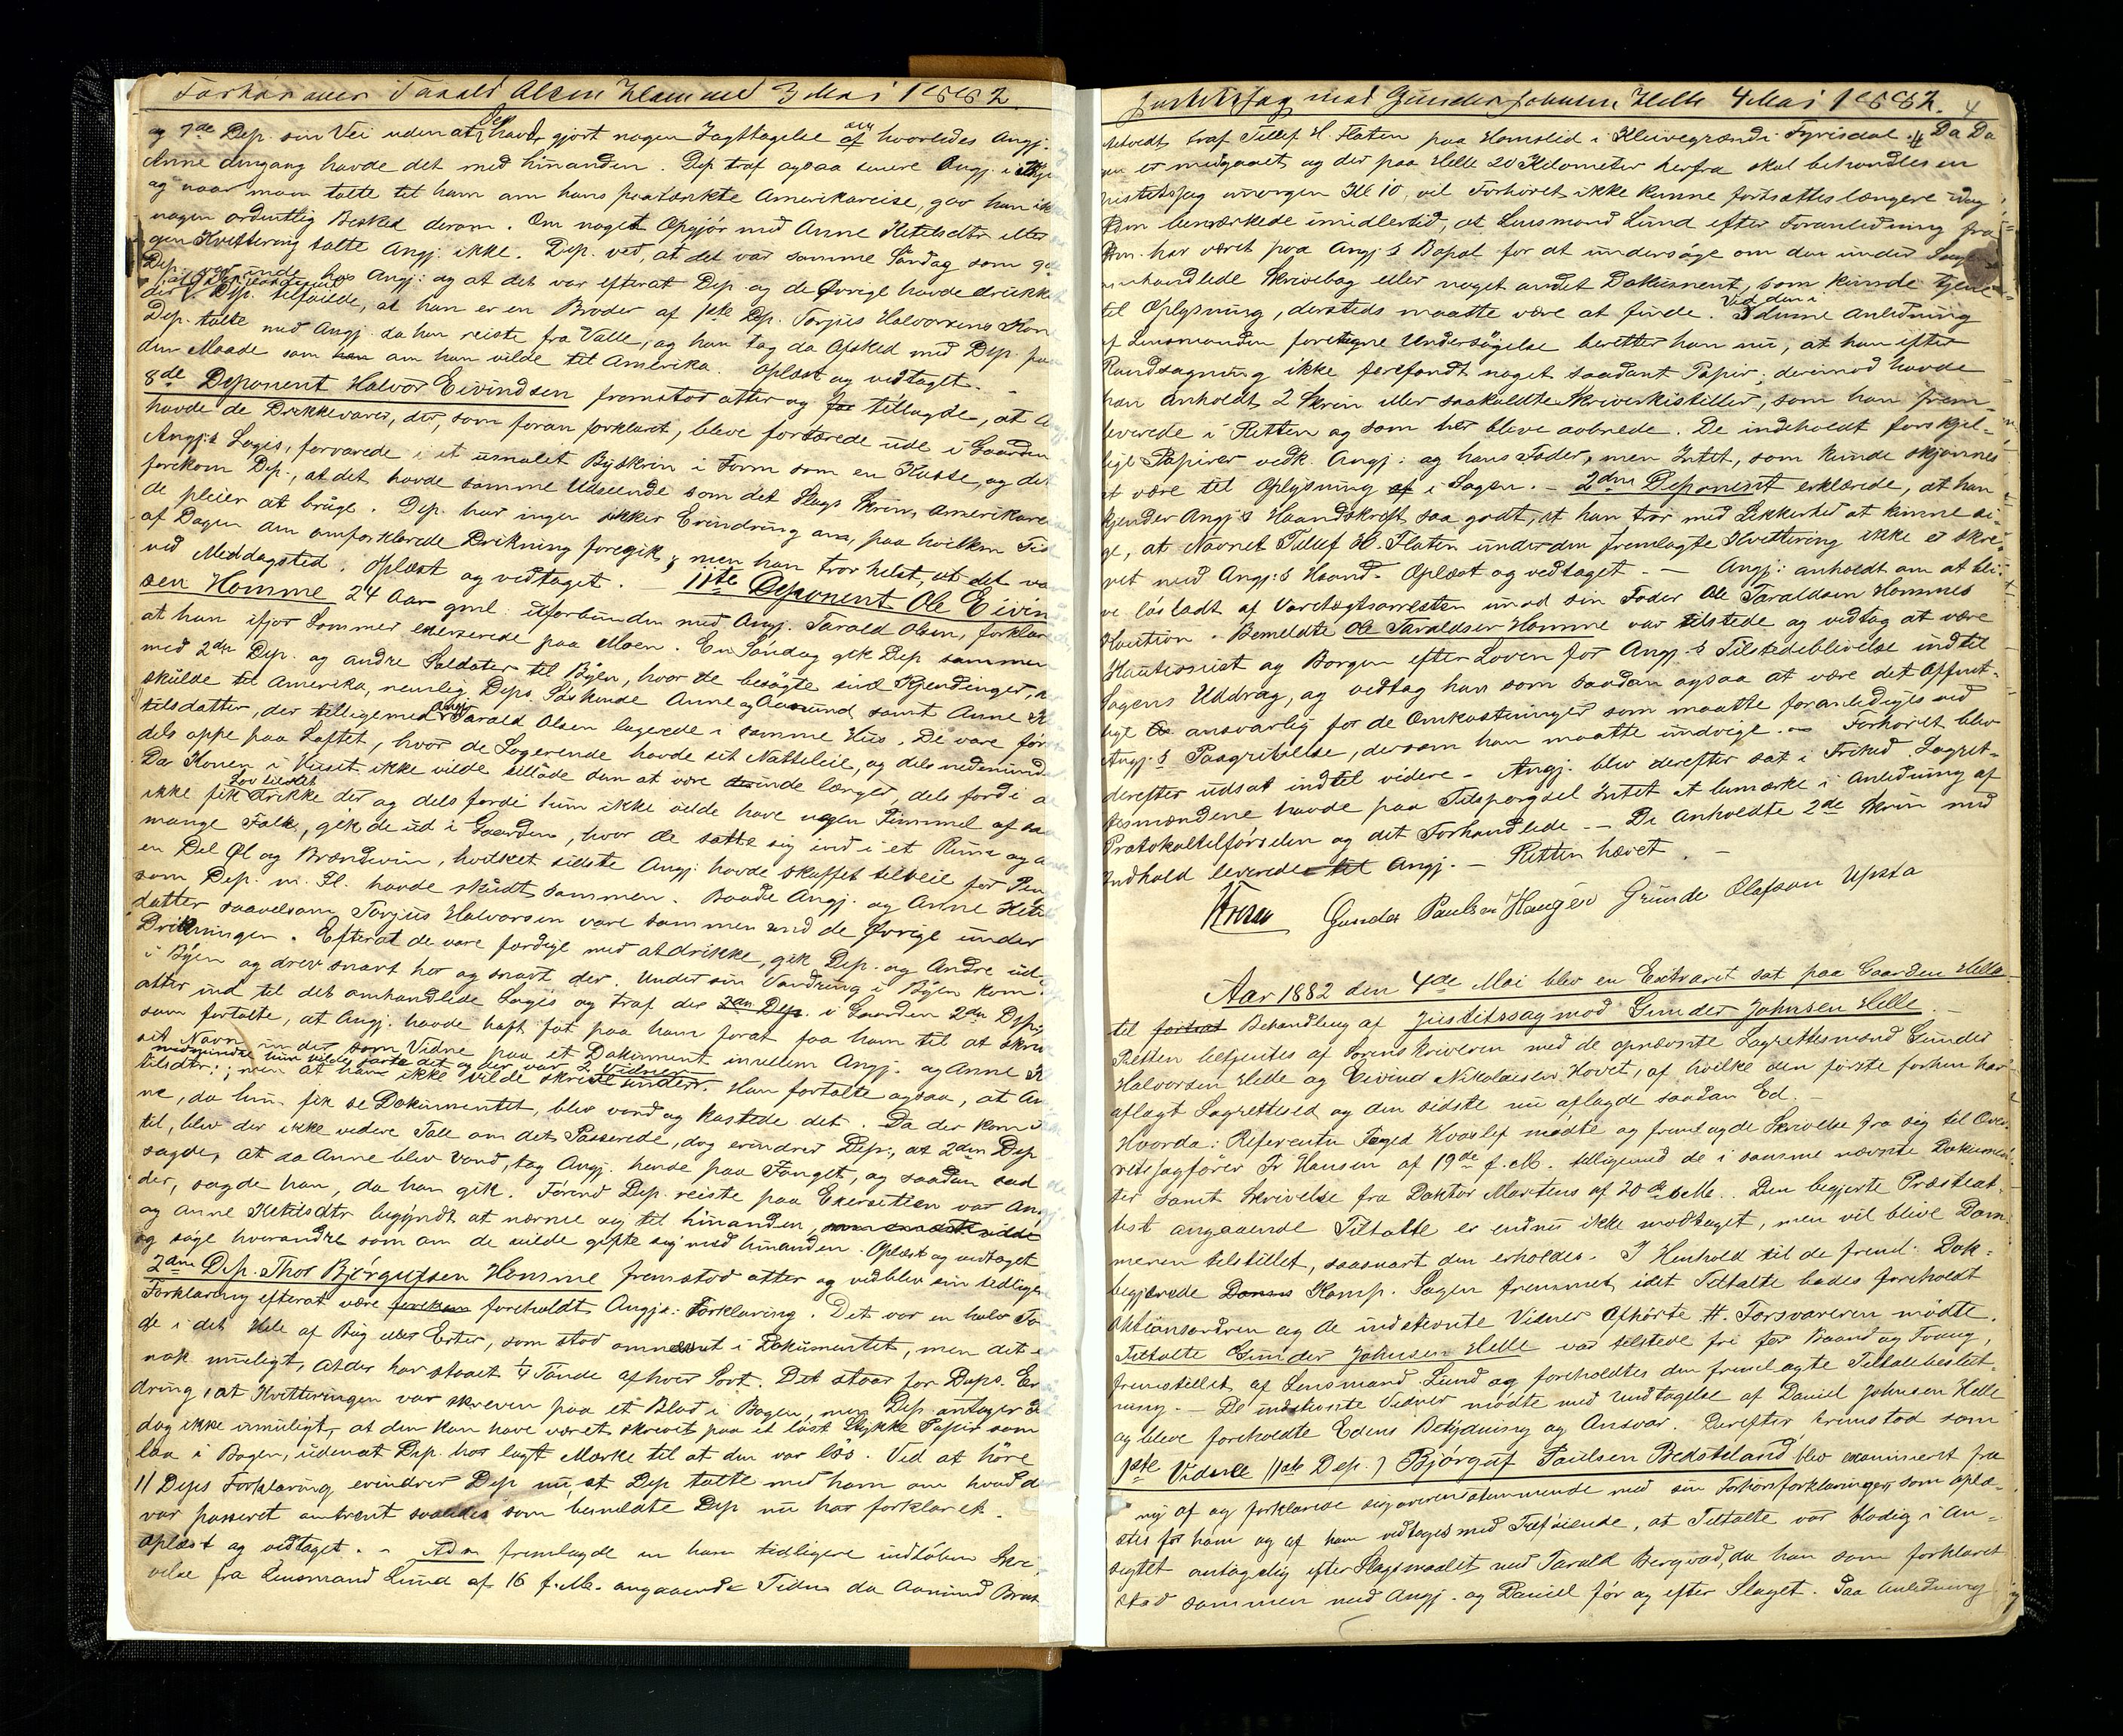 Forhør over Tarald Olsen Homme 3 Mai 1882.
og 7de Dep. sin Vei uden at Dep. havde gjort nogen Iagttagelse om hvorledes Angj.
Anne omgang havde det med hinanden. Dep. traf ogsaa senere Angj. i
og naar man talte til ham om hans paatænkte Amerikareise, gav han ik
nogen ordentlig Besked derom. Om noget Opgjør med Anne Ketilsdtr eller
gen Kvittering talte Angj. ikke. Dep. ved, at det var samme Søndag som
Dep. var inde hos Angj. og at det var efterat Dep. og de Øvrige havde drukket
der. Dep. tilføiede, at han er en Broder af 1ste Dep. Torjus Halvorsens Kon
Dep. talte med Angj. da han reiste fra Valle, og han tog da Afsked med Dep. paa
den Maade som om han vilde til Amerika. Oplæst og vedtaget. -
8de Deponent Halvor Eivindsen fremstod atter og tillagde, at A
havde de Drikkevarer, der, som foran forklaret, bleve fortærede ude i Gaarden
Angj:s Logis, forvarede i et umalet Byskrin i Form som en Kasse, og det
forekom Dep., at det havde samme Udseende som det Slags Skrin, Amerikare
de pleier at bruge. Dep. har ingen sikker Erindring om, paa hvilken Tid
af Dagen den omforklarede Drikning foregik, men han tror helst, at det va
ved Middagstid. Oplæst og vedtaget. - 11te Deponent Ole Eivin
sen Homme 24 Aar gml. uforbunden med Angj. Tarald Olsen, forklar
at han ifjor Sommer exerserede paa Moen. En Søndag gik Dep. sammen
med 2den Dep. og andre Soldater til Byen, hvor de besøgte sine Kjendinger,
skulde til Amerika, nemlig Deps. Søskende Anne og Aamund samt Anne K
tilsdatter, der tilligemed Angj. Tarald Olsen logerede i samme Hus. De vare før
dels oppe paa Loftet, hvor de Logerende havde sit Natteleie, og dels nedenunde
Da Konen i Huset ikke vilde tillade dem at være inde længer, dels fordi
ikke fik Lov til at drikke der og dels fordi hun ikke vilde have nogen Tummel af saa
mange Folk, gik de ud i Gaarden, hvor de satte sig ind i et Rum og d
en Del Øl og Brændevin, hvilket sidste Angj. havde skaffet tilveie for Pen
som Dep. m. Fl. havde skudt sammen. Baade Angj. og Anne Ketils
datter saavelsom Torjus Halvorsen vare sammen med de Øvrige under
Drikningen. Efterat de vare færdige med at drikke, gik Dep. og Andre ud
i Byen og drev snart her og snart der. Under sin Vandring i Byen kom
atter ind til det omhandlede Logis og traf der i Gaarden 2den Dep.
som fortalte, at Angj. havde havt fat paa ham forat faa ham til at skriv
sit Navn under som Vidne paa et Dokument imellem Angj. og Anne K
tilsdtr.; men at han ikke vilde skrive under. Han fortalte ogsaa, at An
ne, da hun fik se Dokumentet, blev vond og kastede det. Da der kom
til, blev der ikke videre Tale om det Passerede, dog erindrer Dep., at 2den Dep
sagde, at da Anne blev vond, tog Angj. hende paa Fanget, og saadan sad
der, sagde han, da han gik. Førend Dep. reiste paa Exersitien var An
og Anne Ketilsdtr begyndt at nærme sig til hinanden,
og søge hverandre som om de vilde gifte sig med hinanden. Oplæst og vedtaget
2den Dep. Thor Bjørgufsen Homme fremstod atter og vedblev sin tidligere
Forklaring efterat være foreholdt Angjs: Forklaring. Det var en halv Tø
de i det Hele af Byg eller Erter, som stod omnævnt i Dokumentet, men det
nok muligt, at der har staaet ¼ Tønde af hver Sort. Det staar for Deps. Er
dring, at Kvitteringen var skreven paa et Blad i Bogen, men Dep. antager
dog ikke umuligt, at den kan have været skrevet paa et løst Stykke Papir som
laa i Bogen, uden at Dep. har lagt Mærke til at den var løs. Ved at høre
11 Deps Forklaring erindrer Dep nu, at Dep talte med ham om hvad der
var passeret omtrent saaledes som bemeldte Dep nu har forklaret.
Oplæst og vedtaget. - Adm fremlagde en ham tidligere indløben Skri
velse fra Lensmand Lund af 16 f. M. angaaende Tiden da Aamund Brat
Justitssag mod Gunder Johnsen Helle 4 Mai 1882. 4
tetvedt traf Tellef H. Flaten paa Homslid i Kleivegrænd i Fyrisdal. # Da Da
en er medgaaet og der paa Helle 20 Kilometer herfra skal behandles en
Justitssag imorgen Kl 10, vil Forhøret ikke kunne fortsættes længere idag
bemærkede imidlertid, at Lensmand Lund efter Foranledning fra
har været paa Angj:s Bopæl for at undersøge om den under Sagen
omhandlede Skrivebog eller noget andet Dokument, som kunde tjene
til Oplysning, dersteds maatte være at finde. Ved den i denne Anledning
af Lensmanden foretagne Undersøgelse beretter han nu, at han efter
Randsagning ikke forefandt noget saadant Papir; derimod havde
han anholdt 2 Skrin eller saakaldte Skriverkistiller, som han frem-
leverede i Retten og som her bleve aabnede. De indeholdt forskjel-
lige Papirer vedk. Angj: og hans Fader, men Intet, som kunde skjønnes
at være til Oplysning i Sagen. - 2den Deponent erklærede, at han
kjender Angj:s Haandskrift saa godt, at han tror med Sikkerhed at kunne si-
ge, at Navnet Tellef H. Flaten under den fremlagte Kvittering ikke er skre-
vet med Angj:s Haand. Oplæst og vedtaget. - Angj: anholdt om at bli-
ve løsladt af Varetægtsarresten imod sin Fader Ole Taraldsen Hommes
Kaution. - Bemeldte Ole Taraldsen Homme var tilstede og vedtog at være
Kautionist og Borgen efter Loven for Angj:s Tilstedeblivelse indtil
Sagens Uddrag, og vedtog han som saadan ogsaa at være det Offent-
lige ansvarlig for de Omkostninger som maatte foranlediges ved
Angj:s Paagribelse, dersom han maatte undvige. - Forhøret blev
derefter udsat indtil videre. - Angj. blev derefter sat i Frihed. Lagret-
tesmændene havde paa Tilspørgsel Intet at bemærke i Anledning af
Protokoltilførselen og det Forhandlede. - De anholdte 2de Skrin med
Indhold leveredes til Angj. - Retten hævet. -
Gunder Paulsen Haugen Grunde Olafsen Upsta
Aar 1882 den 4de Mai blev en Extraret sat paa Gaarden Helle
til Behandling af Justitssag mod Gunder Johnsen Helle. -
Retten betjentes af Sorenskriveren med de opnævnte Lagrettesmænd Gunder
Halvorsen Helle og Eivind Nikolaisen Hovet, af hvilke den første forhen har
aflagt Lagretteseed og den sidste nu aflagde saadan Ed. -
Hvorda: Referenten Foged Hvoslef mødte og fremlagde Skrivelse fra sig til Over-
retssagfører Fr Hansen af 19de f. M. tilligemed de i samme nævnte Dokumen-
ter samt Skrivelse fra Doktor Martens af 20de s M. Den begjerte Præsteat-
test angaaende Tiltalte er endnu ikke modtaget, men vil blive Dom-
meren tilstillet, saasnart den erholdes. I Henhold til de freml. Dok-
begjærede Komp. Sagen fremmet, idet Tiltalte bades foreholdt
Aktionsordren og de indstevnte Vidner Afhørte #. Forsvareren mødte.
Tiltalte Gunder Johnsen Helle var tilstede fri for Baand og Tvang,
fremstillet af Lensmand Lund og foreholdtes den fremlagte Tiltalebeslut-
ning. - De indstevnte Vidner mødte med Undtagelse af Daniel Johnsen Helle
og bleve foreholdte Edens Betydning og Ansvar. Derefter fremstod som
1ste Vidne (1ste Dep.) Bjørguf Paulsen Bedsteland, blev examineret fra
nyt af og forklarede sig overensstemmende med sin Forhørsforklaring, som oplæ-
stes for ham og af ham vedtoges med Tilføiende, at Tiltalte var blodig i An-
sigtet antagelig efter Slagsmaalet med Tarald Bergvad, da han som forklaret
stod sammen med Angj. og Daniel før og efter Slaget. Paa Anledning